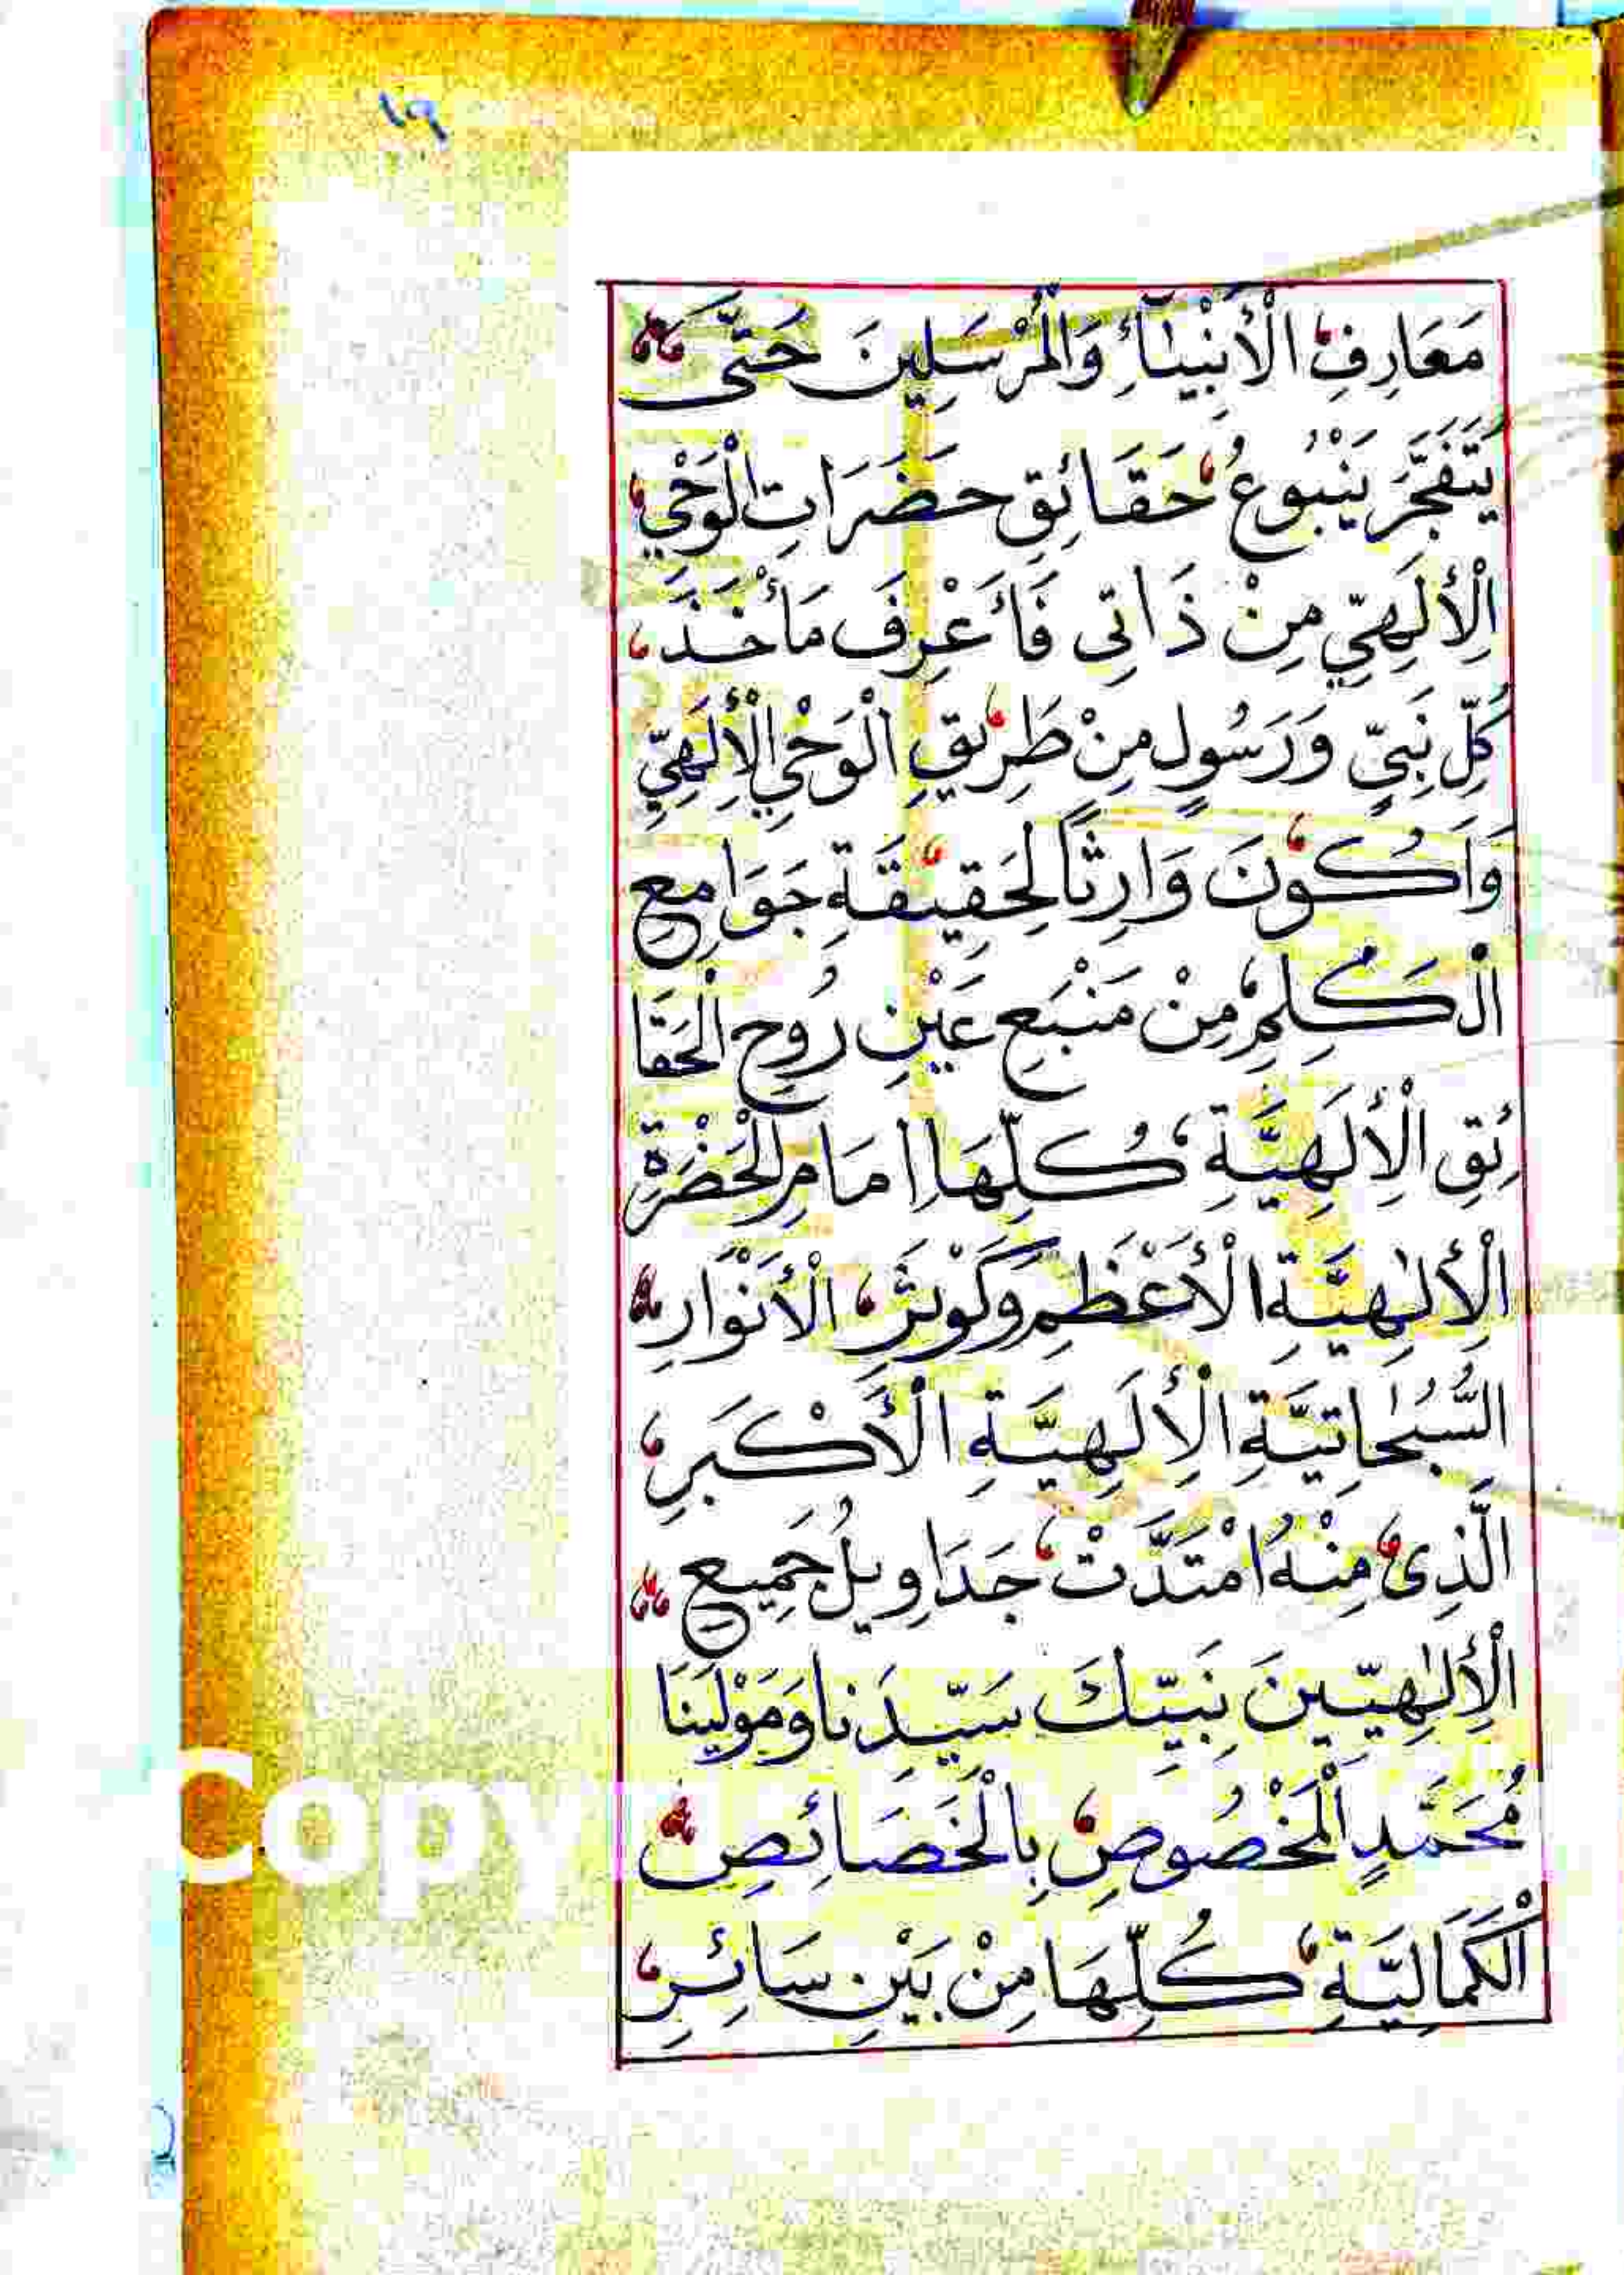 ١٩
مَعَارِفِ الْأَنْبِيَآءِ وَالْمُرْسَلِينَ حَتَّى
يَتَفَجَّرَ يَنْبُوعُ حَقَائِقِ حَضَرَاتِ الْوَحْيِ
الْأِلَهِيِّ مِنْ ذَاتِى فَأَعْرِفَ مَأْخَذَ
كُلِّ نَبِيٍّ وَرَسُولٍ مِنْ طَرِيقِ الْوَحْيِ الْأِلَهِيِّ
وَأَكُونَ وَارِثًا لِحَقِيقَةِ جَوَامِعِ
الْكَلِمِ مِنْ مَنْبَعِ عَيْنِ رُوحِ الْحَقَا
ئِقِ الْأِلَهِيَّةِ كُلِّهَا اِمَامِ الْحَضْرَةِ
الْأِلٰهِيَّةِ الْأَعْظَمِ وَكَوْثَرِ الْأَنْوَارِ
السُّبُحَاتِيَّةِ الْأِلَهِيَّةِ الْأَكْبَرِ
الَّذِى مِنْهُ امْتَدَّتْ جَدَاوِيلُ جَمِيعِ
الْأِلٰهِيِّينَ نَبِيِّكَ سَيِّدِنا وَمَوْلَينَا
مُحَمَّدٍ الْمَخْصُوصِ بِالْخَصَائِصِ
الْكَمَالِيَّةِ كُلِّهَا مِنْ بَيْنِ سَائِرِ
Copy